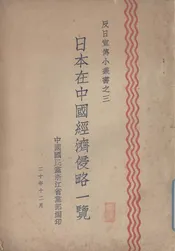 反日宣傳小叢書之三
日本在中國經濟侵略一覽
中國國民黨浙江省黨部編印
二十年十二月